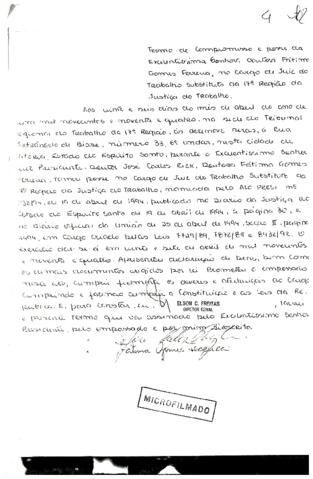 4
Termo de Compromisso e posse da
Excelentíssima Senhora Doutora Fátima
Gomes Ferreira, no cargo de Juiz do
Trabalho Substituto da 17ª Região da
Justiça do Trabalho.
Aos vinte e seis dias do mês de abril do ano de
um mil novecentos e noventa e quatro, na sede do Tribunal
Regional do Trabalho da 17ª Região, às dezenove horas, à Rua
de Bisse, número 33, 6º andar, nesta cidade de
Vitória, Estado do Espírito Santo, perante o Excelentíssimo Senhor
Juiz Presidente, Doutor José Carlos Rizk, Doutora Fátima Gomes
Ferreira, tomou posse no cargo de Juiz do Trabalho Substituto da
17ª Região da Justiça do Trabalho, nomeada pelo ATO PRESI nº
de 15 de abril de 1994, publicado no Diário da Justiça do
Estado do Espírito Santo de 19 de abril de 1994, à página 30, e
no Diário Oficial da União de 25 de abril de 1994, seção II, página
em cargo criado pelas Leis 7729/89, 7872/89 e 8432/92. O
exercício dar-se-á em vinte e sete de abril de mil novecentos
e noventa e quatro. Apresentou declaração de bens, bem como
os demais documentos exigidos por lei. Prometeu o empossado
nesse ato, cumprir fielmente os deveres e atribuições do cargo
cumprindo e fazendo cumprir a Constituição e as Leis da Re-
pública. E, para constar, eu, ELSON C. FREITAS
DIRETOR GERAL
o presente termo que vai assinado pelo Excelentíssimo Senhor
Presidente, pelo empossado e por mim subscrito.
Fátima Gomes Ferreira
MICROFILMADO